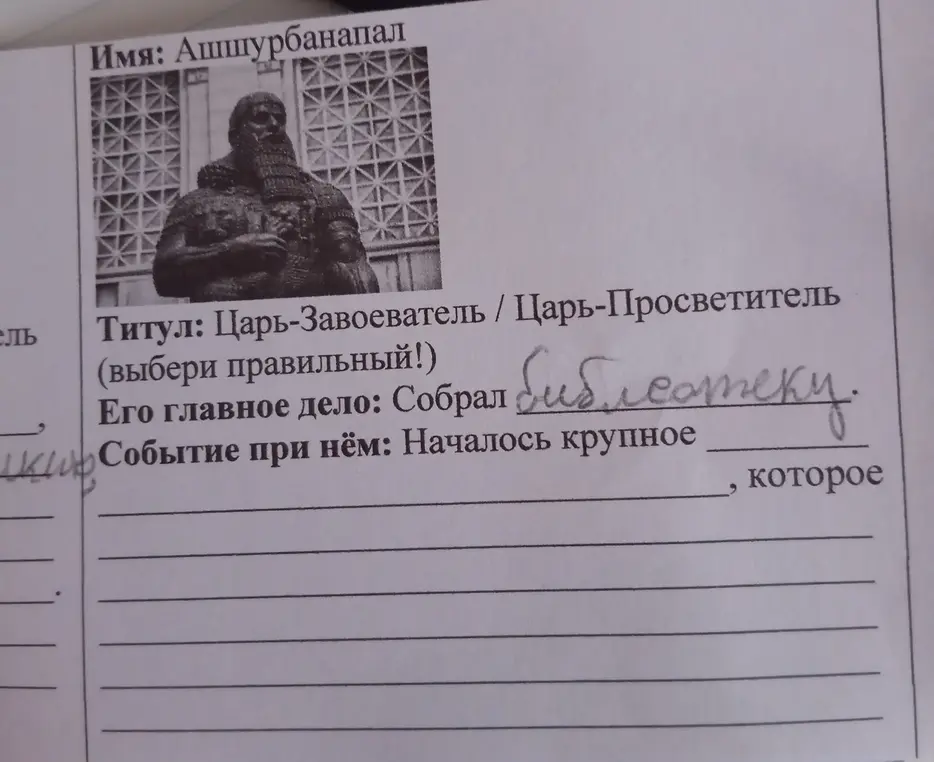 Имя: Ашшурбанапал
Титул: Царь-Завоеватель / Царь-Просветитель
ель
(выбери правильный!)
Его главное дело: Собрал библеотеку.
,
Событие при нём: Началось крупное
, которое
.